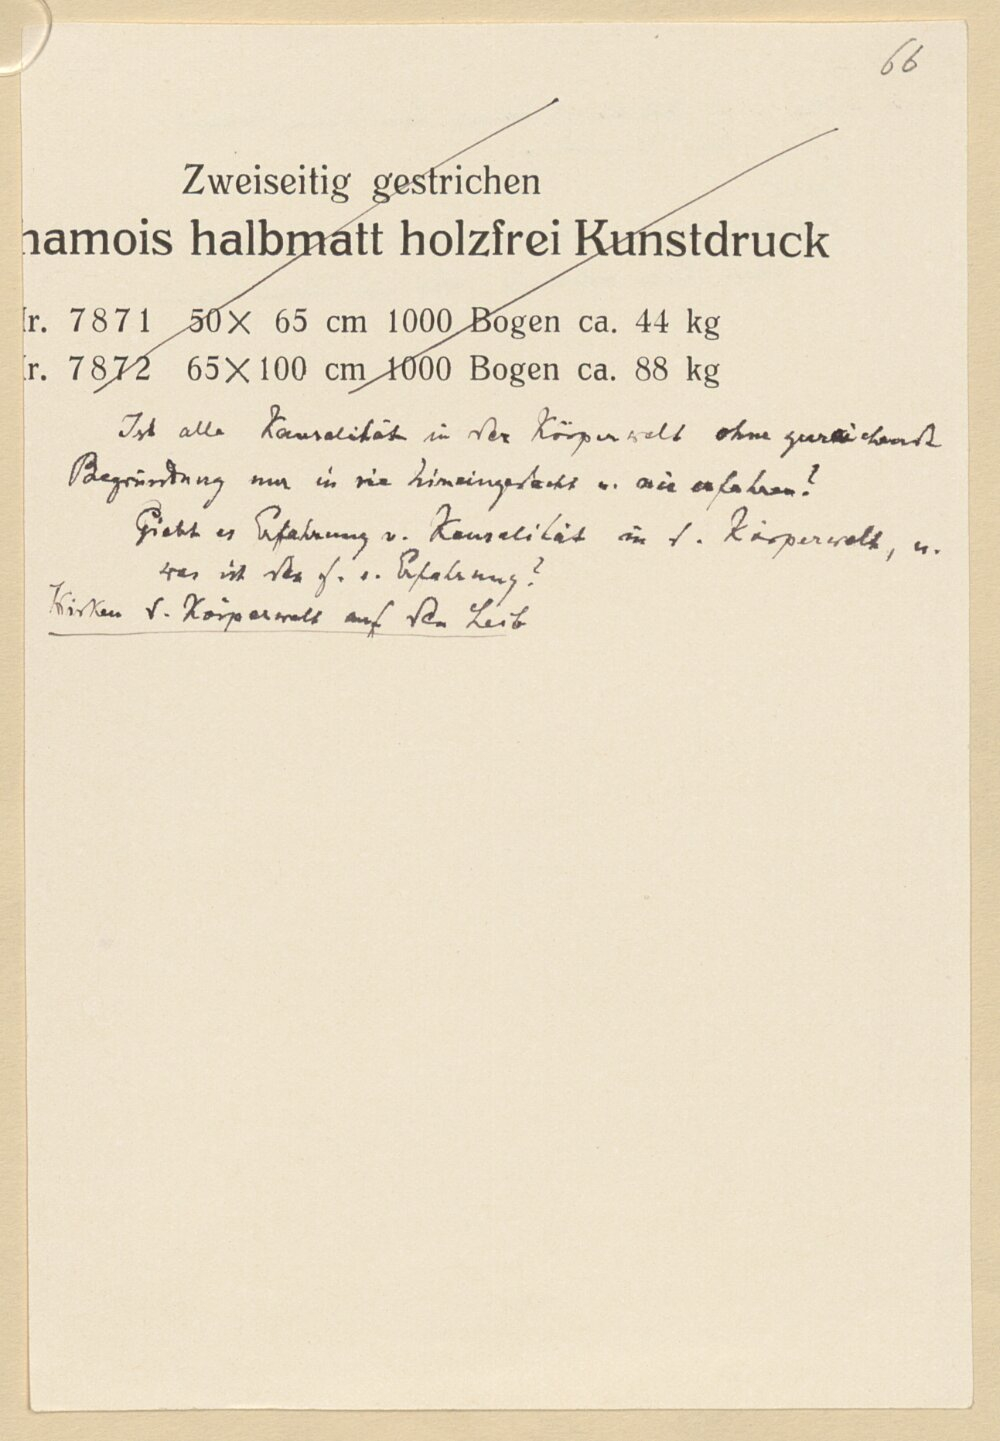 66
Zweiseitig gestrichen
hamois halbmatt holzfrei Kunstdruck
Nr. 7871 50 × 65 cm 1000 Bogen ca. 44 kg
Nr. 7872 65 × 100 cm 1000 Bogen ca. 88 kg
Ist alle Kausalität in der Körperwelt ohne zureichende
Begründung nur in sie hineingedacht u. nie erfahren?
Giebt es Erfahrung v. Kausalität in d. Körperwelt, u.
was ist das f. e. Erfahrung?
Wirken d. Körperwelt auf den Leib